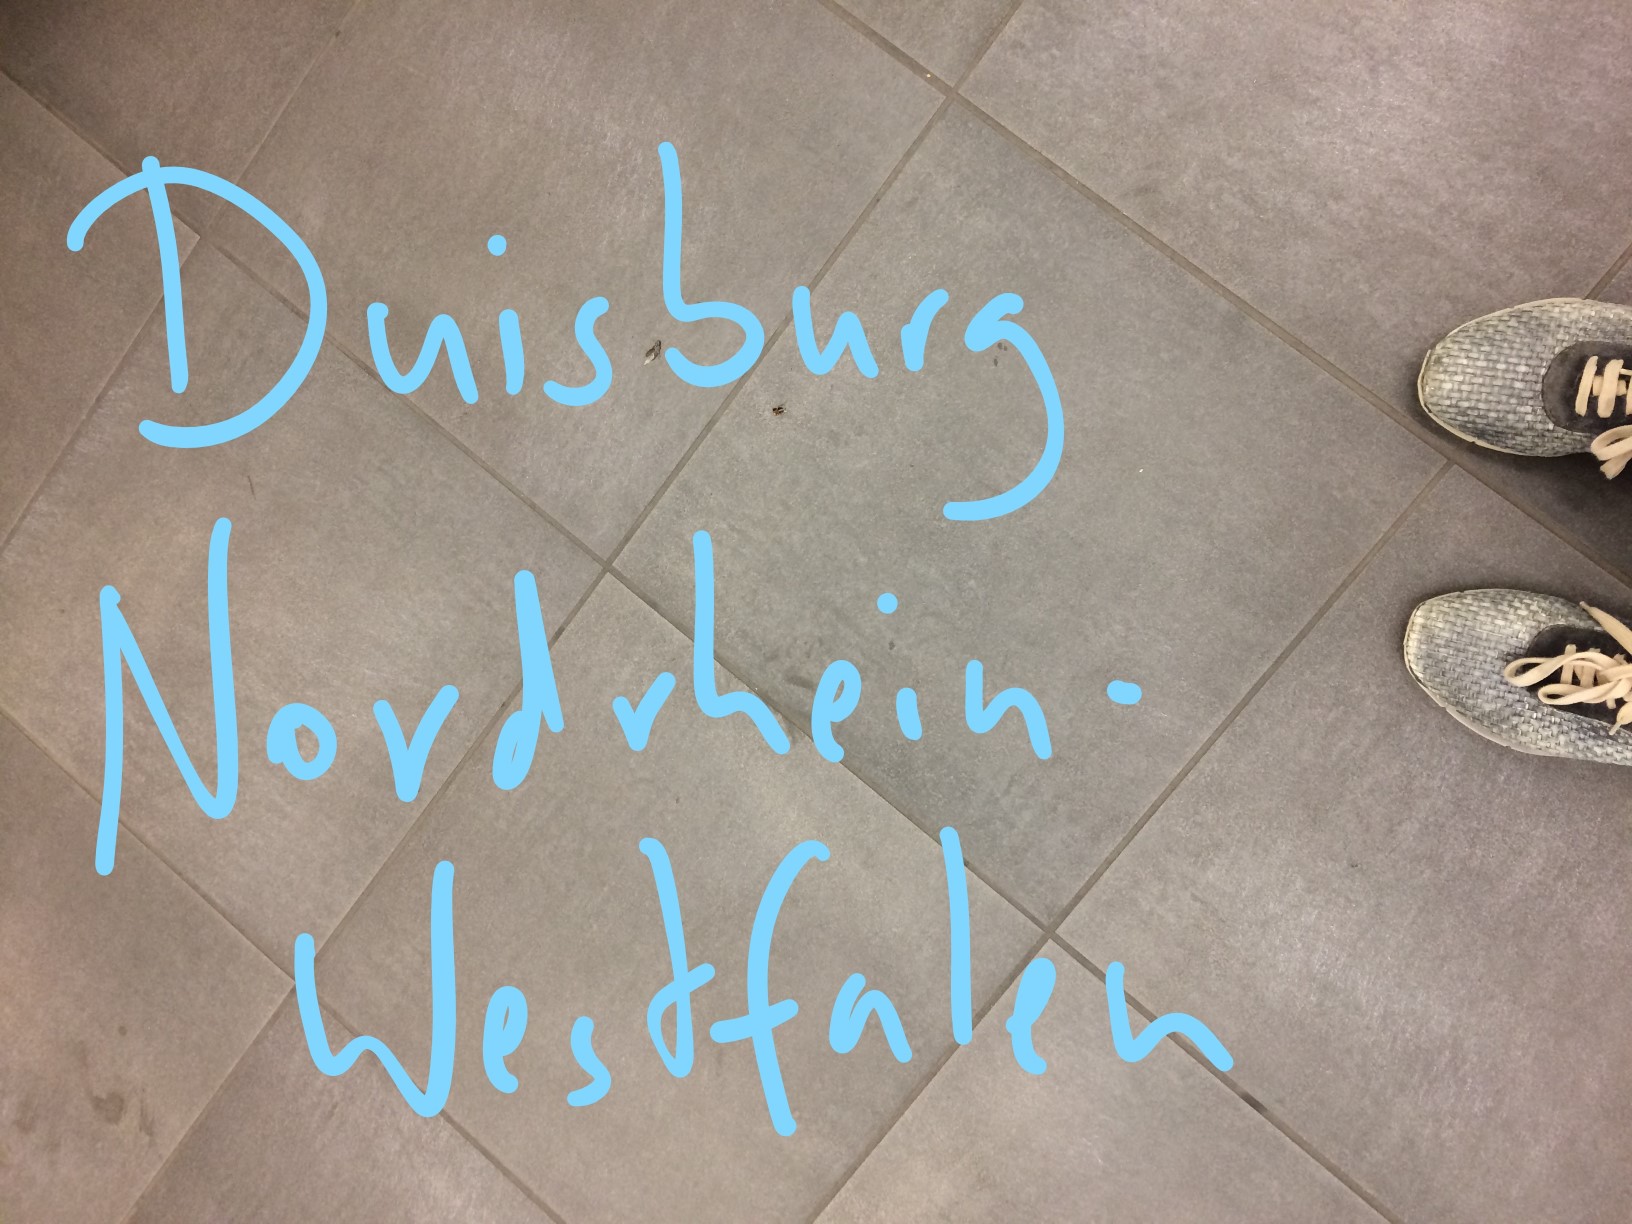 Duisburg
Nordrhein-
Westfalen